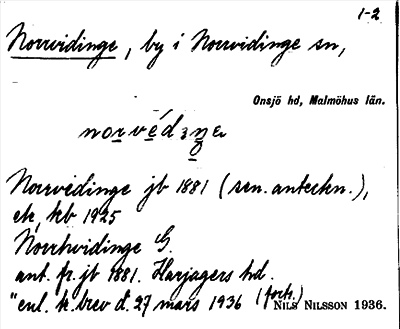 1-2
Norrvidinge, by i Norrvidinge sn,
Onsjö hd, Malmöhus län.
Norrvidinge jb 1881 (sen. anteckn.),
ek, kb 1925
Norrhvidinge G.
ant. fr. jb 1881. Harjagers hd.
"enl. k. brev d. 27 mars 1936 (forts.)
NILS NILSSON 1936.